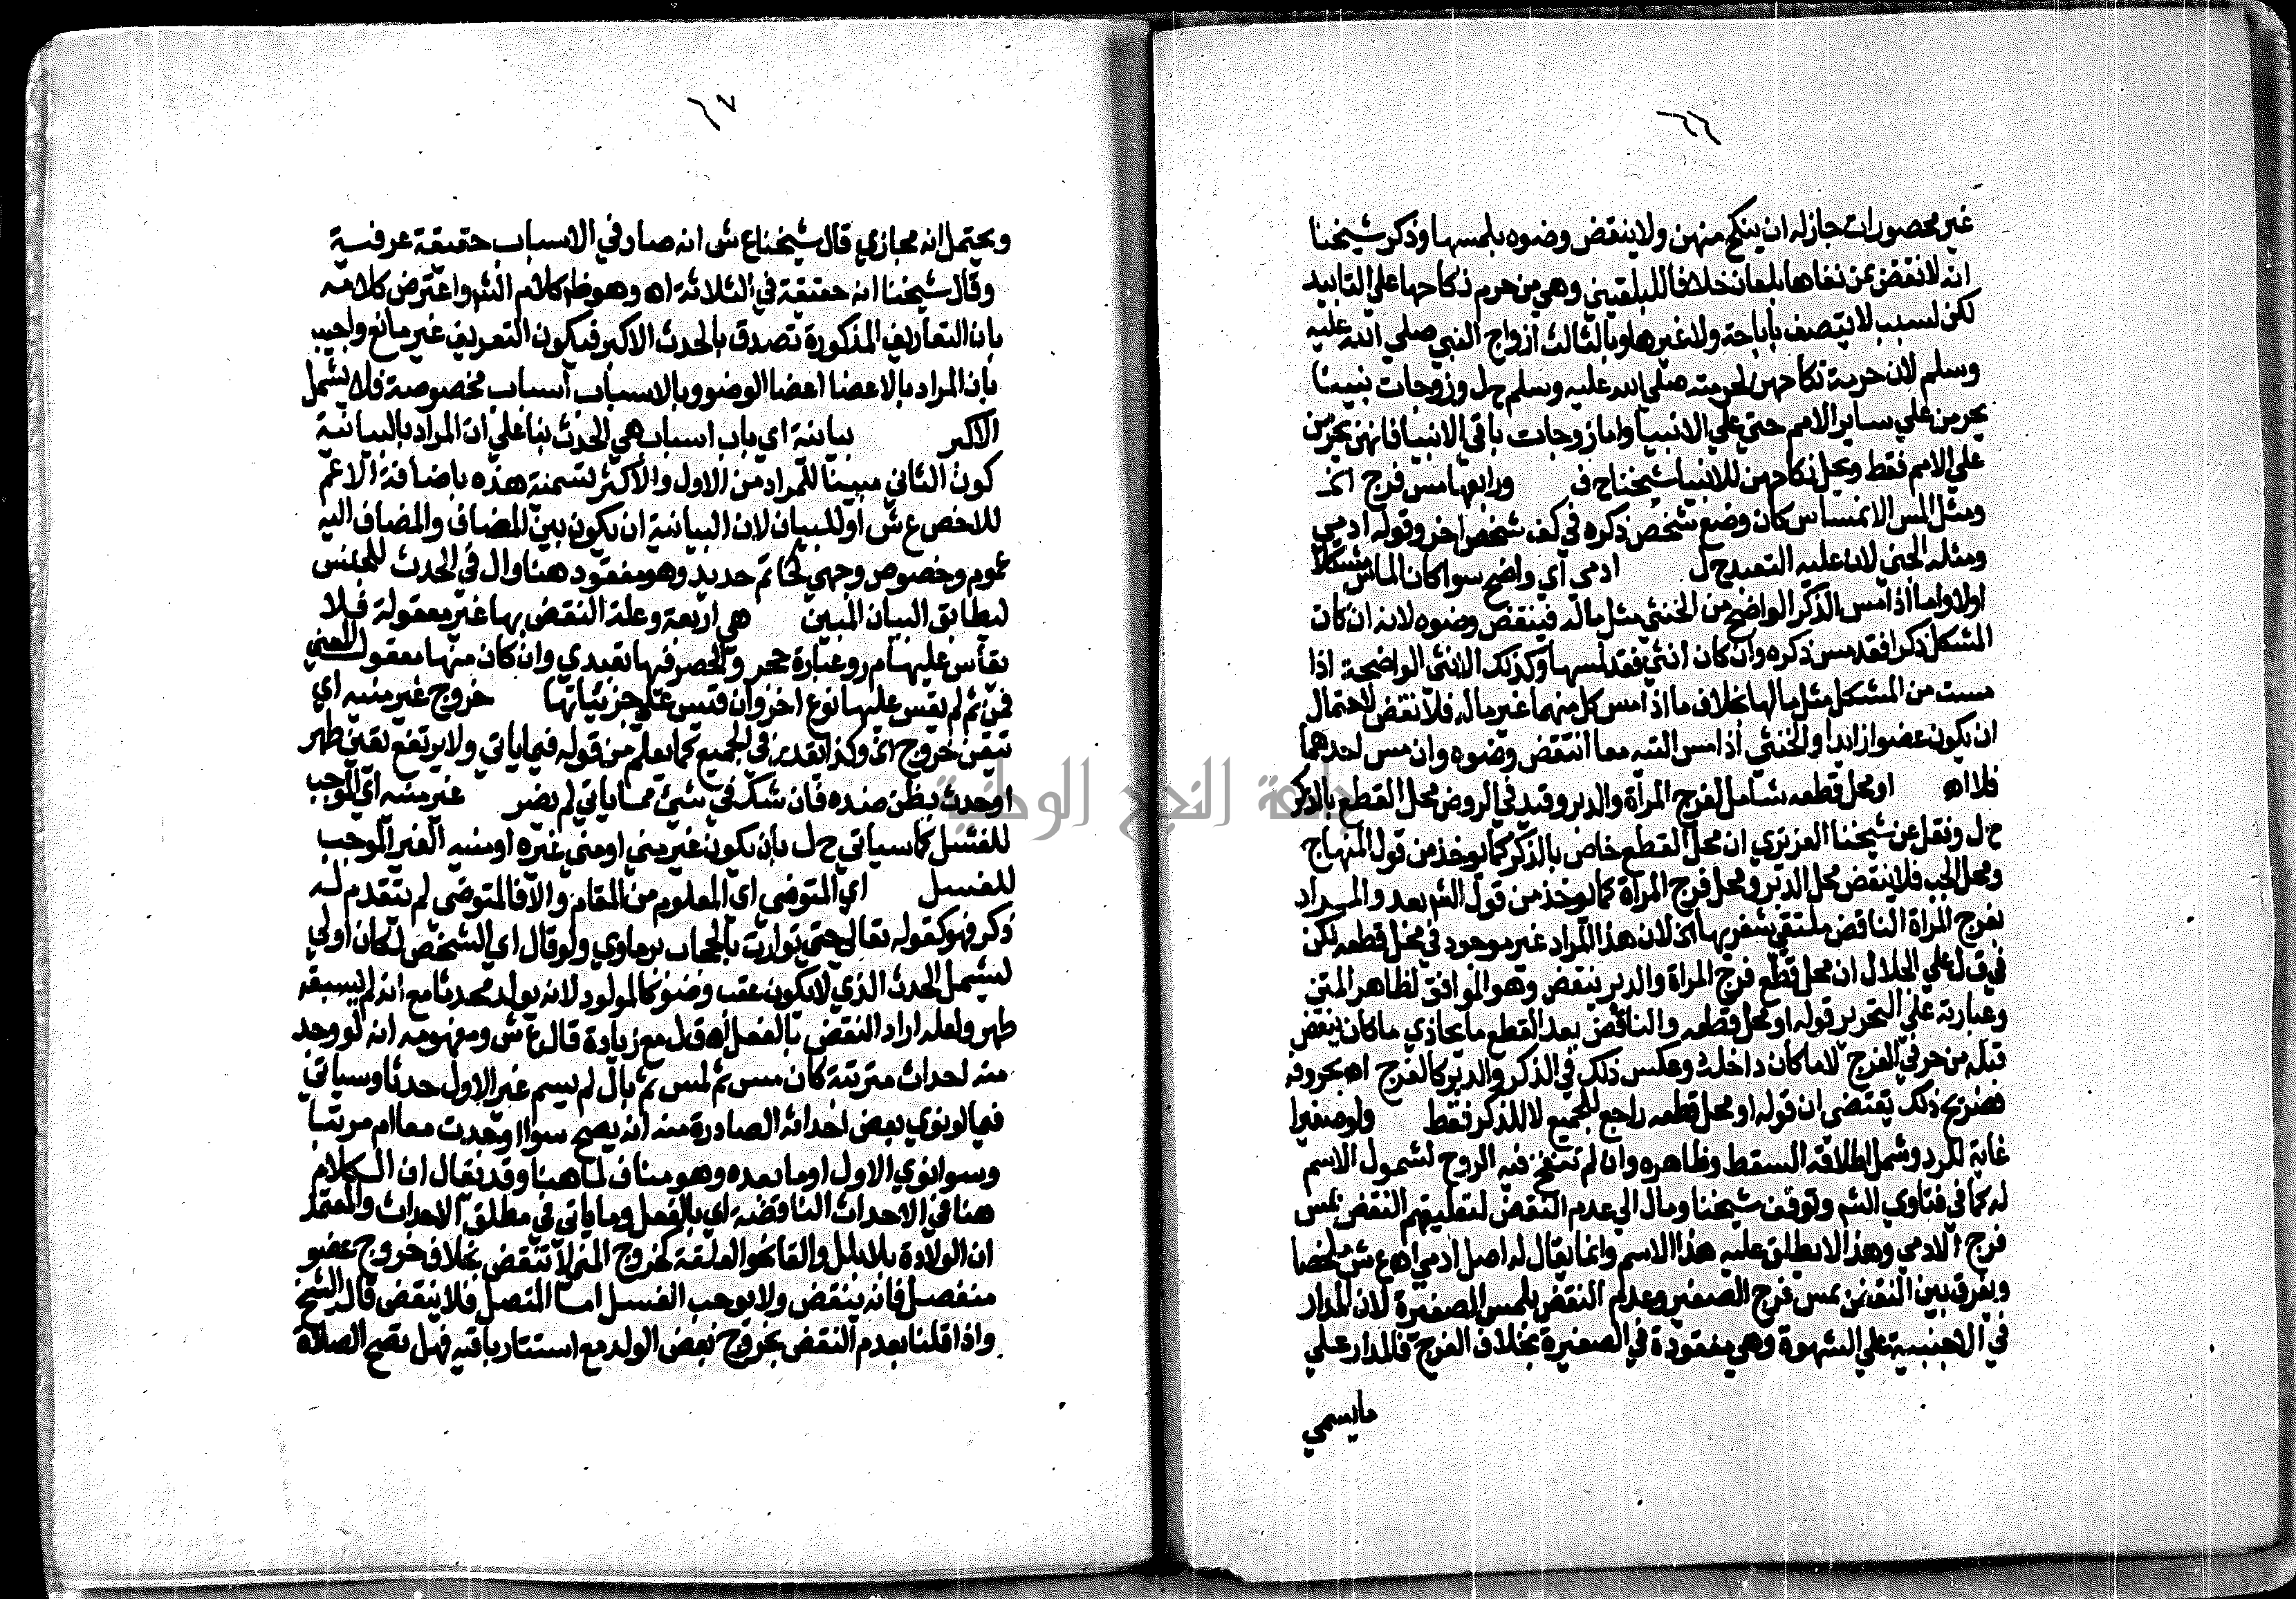 ٦٦
غير محصورات جاز له ان ينكح منهن ولا ينقض وضوه بلمسها وذكر شيخنا
انه لا نقض بمن نفاها بلعان خلافا للبلقيني وهي من حرم نكاحها علي التابيد
لكن لسبب لا يتصف باباحة ولا غيرها وبالثالث ازواج النبي صلي الله عليه
وسلم لان حرمة نكاحهن لحرمته صلي الله عليه وسلم ح ل وزوجات نبينا
يحرمن علي ساير الامم حتي علي الانبيا واما زوجات باقي الانبيا فانهن يحرمن
علي الامم فقط ويحل نكاحهن للانبيا شيخنا ح ف ورابعها مس فرج الخ
ومثل المس الانمساس كان وضع شخص ذكره في كف شخص اخر وقوله ادمي
ومثله الجني لان عليه التعبد ح ل ادمي اي واضح سوا كان الماس مشكلا
اولا واما اذا مس الذكر الواضح من الخنثي مثل ماله فينقض وضوه لانه ان كان
المشكل ذكرا فقد مس ذكره وان كان انثي فقد لمسها وكذلك الانثي الواضحة اذا
مست من المشكل مثل مالها بخلاف ما اذا مس كل منهما غير ماله فلا نقض لاحتمال
ان يكون عضوا زايدا والخنثي اذا مس التيه معا انتقض وضوه وان مس احدهما
فلا اه او محل قطعه شامل لفرج المراة والدبر وقيد في الروض محل القطع بالذكر
ح ل ونقل عن شيخنا العزيزي ان محل القطع خاص بالذكر كما يوخذ من قول المنهاج
ومحل الجب فلا ينقض محل الدبر ومحل فرج المراة كما يوخذ من قول الشم بعد والمراد
بفرج المراة الناقض ملتقي شفريها الخ لان هذا المراد غير موجود في محل قطعه لكن
في ق ل علي الجلال ان محل قطع فرج المراة والدبر ينقض وهو الموافق لظاهر المتن
وعبارته علي التحرير قوله او محل قطعه والناقض بعد القطع ما يحاذي ما كان ينقض
قبله من حرفي الفرج لا ما كان داخله وعكس ذلك في الذكر والدبر كالفرج اه بحروفه
فصريح ذلك يقتضي ان قوله او محل قطعه راجع للجميع لا للذكر فقط ولو صغيرا
غاية للرد وشمل اطلاقه السقط وظاهره وان لم تنفخ فيه الروح لشمول الاسم
له كما في فتاوي الشم وتوقف شيخنا ومال الي عدم النقض لتعليقهم النقض بمس
فرج الادمي وهذا لا يطلق عليه هذا الاسم وانما يقال له اصل ادمي اه ع ش ملخصا
ويفرق بين النقض بمس فرج الصغير وعدم النقض بلمس الصغيرة لان المدار
في الاجنبية علي الشهوة وهي مفقودة في الصغيرة بخلاف الفرج فالمدار علي
مايسمي
٦٧
ويحتمل انه مجازي قال شيخنا ع ش انه صار في الاسباب حقيقة عرفية
وقال شيخنا انه حقيقة في الثلاثة اه وهو ظاهر كلام الشم واعترض كلامه
بان التعاريف المذكورة تصدق بالحدث الاكبر فيكون التعريف غير مانع واجيب
بان المراد بالاعضا اعضا الوضو وبالاسباب اسباب مخصوصة فلا يشمل
الاكبر بيانية اي باب اسباب هي الحدث بنا علي ان المراد بالبيانية
كون الثاني مبينا للمراد من الاول والاكثر تسمية هذه باضافة الاعم
للاخص ع ش او للبيان لان البيانية ان يكون بين المضاف والمضاف اليه
عموم وخصوص وجهي كخاتم حديد وهو مفقود هنا وال في الحدث للجنس
ليطابق البيان المبين هي اربعة وعلة النقض بها غير معقولة فلا
يقاس عليها م ر وعبارة حجر والحصر فيها تعبدي وان كان منها معقول المعني
فمن ثم لم يقس عليها نوع اخر وان قيس علي جزئياتها خروج غير منيه اي
تيقن خروج الخ وكذا يقدر في الجميع كما يعلم من قوله فيما ياتي ولا يرتفع يقين طهر
او حدث بظن ضده فان شك في شيئ مما ياتي لم يضر غير منيه اي الموجب
للغسل كما سياتي ح ل بان يكون غير مني او مني غيره او منيه الغير الموجب
للغسل اي المتوضي اي المعلوم من المقام والا فالمتوضي لم يتقدم له
ذكر فهو كقوله تعالي حتي توارت بالحجاب برماوي ولو قال اي الشخص لكان اولي
ليشمل الحدث الذي لا يكون عقب وضوء كالمولود لانه يولد محدثا مع انه لم يسبقه
طهر ولعله اراد النقض بالفعل اه ق ل مع زيادة قال ع ش ومفهومه انه لو وجد
منه احداث مترتبة كان مس ثم لمس ثم بال لم يسم غير الاول حدثا وسياتي
فيما لو نوي بعض احداثه الصادرة منه انه يصح سوا اوجدت معا ام مرتبا
وسوا نوي الاول او ما بعده وهو مناف لما هنا وقد يقال ان الكلام
هنا في الاحداث الناقضة اي بالفعل وما ياتي في مطلق الاحداث والمعتمد
ان الولادة بلا بلل والقا نحو العلقة كخروج المني لا تنقض بخلاف خروج عضو
منفصل فانه ينقض ولا يوجب الغسل اما المتصل فلا ينقض قال الشيخ
واذا قلنا بعدم النقض بخروج بعض الولد مع استتار باقيه فهل تصح الصلاة
جامعة النجاح الوطنية